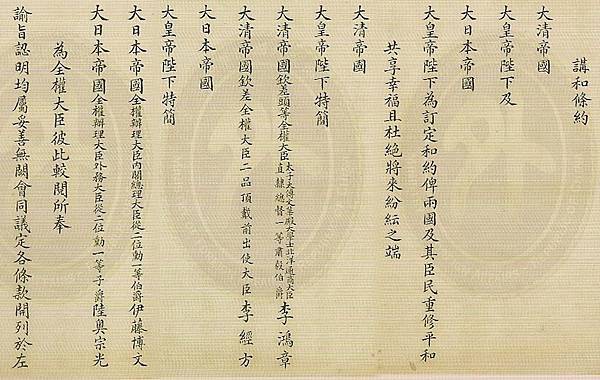 講和條約
大清帝國
大皇帝陛下及
大日本帝國
大皇帝陛下為訂定和約俾兩國及其臣民重修平和
共享幸福且杜絕將來紛紜之端
大清帝國
大皇帝陛下特簡
大清帝國欽差頭等全權大臣太子太傅文華殿大學士北洋通商大臣直隸總督一等肅毅伯爵李鴻章
大清帝國欽差全權大臣二品頂戴前出使大臣李經方
大日本帝國
大皇帝陛下特簡
大日本帝國全權辦理大臣內閣總理大臣從二位勳一等伯爵伊藤博文
大日本帝國全權辦理大臣外務大臣從二位勳一等子爵陸奧宗光
為全權大臣彼此較閱所奉
諭旨認明均屬妥善無闕會同議定各條款開列於左